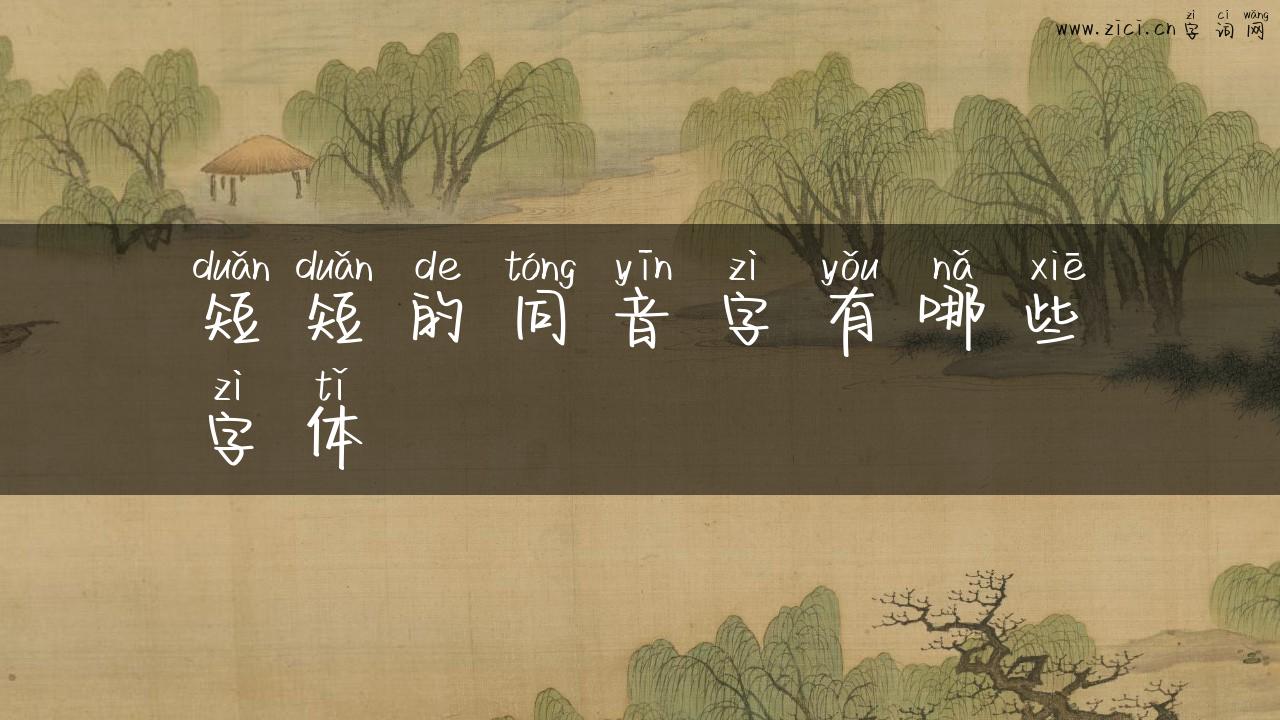 zì cí wǎng
www.zici.cn字词网
duǎn duǎn de tóng yīn zì yǒu nǎ xiē
短短的同音字有哪些
zì tǐ
字体